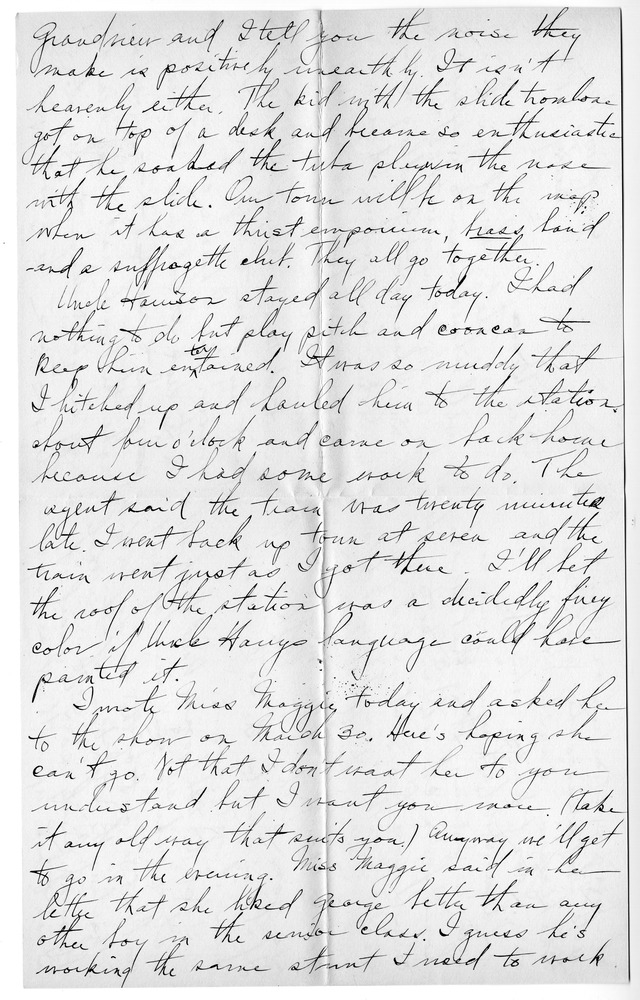 Grandview and I tell you the noise they
make is positively unearthly. It isn't
heavenly either. The kid with the slide trombone
got on top of a desk and became so enthusiastic
that he soaked the tuba plump in the nose
with the slide. Our town will be on the map
when it has a thirst emporium, brass band
-and a suffragette club. They all go together.
Uncle Harrison stayed all day today. I had
nothing to do but play pitch and cooncan to
keep him entertained. It was so muddy that
I hitched up and hauled him to the station.
about four o'clock and came on back home
because I had some work to do. The
agent said the train was twenty minutes
late. I went back up town at seven and the
train went just as I got there. I'll bet
the roof of the station was a decidedly firey
color if Uncle Harrys language could have
painted it.
I wrote Miss Maggie today and asked her
to the show on March 30. Here's hoping she
can't go. Not that I don't want her to you
understand but I want you more. (Take
it any old way that suits you.) Anyway we'll get
to go in the evening. Miss Maggie said in her
letter that she liked George better than any
other boy in the senior class. I guess he's
working the same stunt I used to work